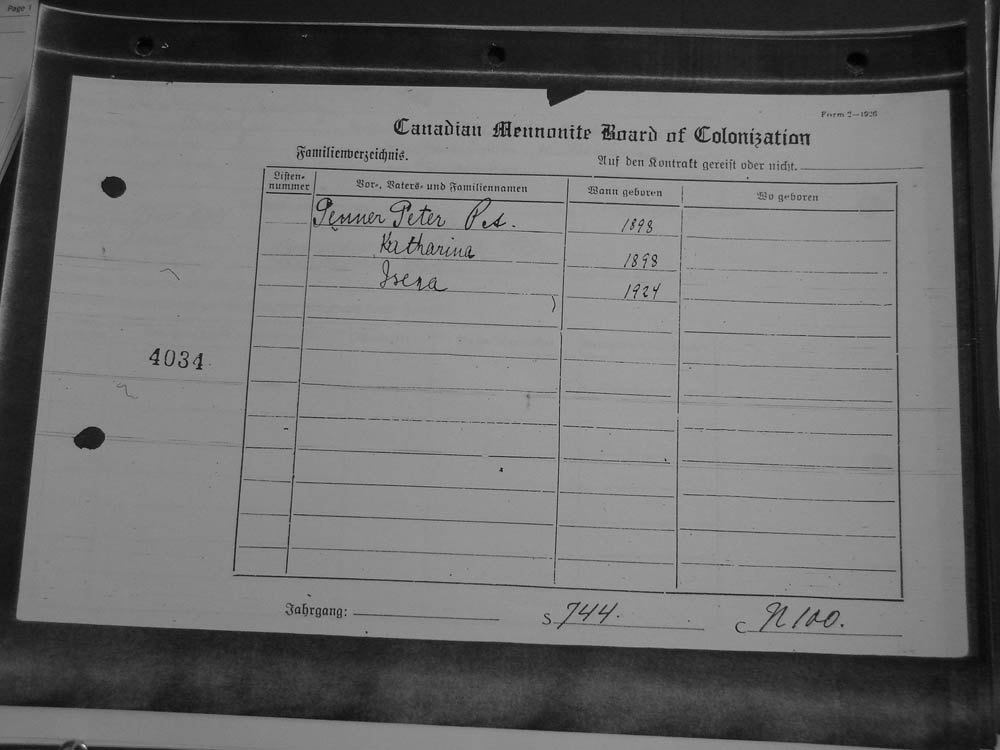 Page 1
Form 2—1926
Canadian Mennonite Board of Colonization
Familienverzeichnis.
Auf den Kontrakt gereist oder nicht.
Listen-
nummer
Vor-, Vaters- und Familiennamen
Wann geboren
Wo geboren
Penner Peter Pet. 1898
Katharina 1898
1924
4034
Jahrgang:
S 744.
C N 100.